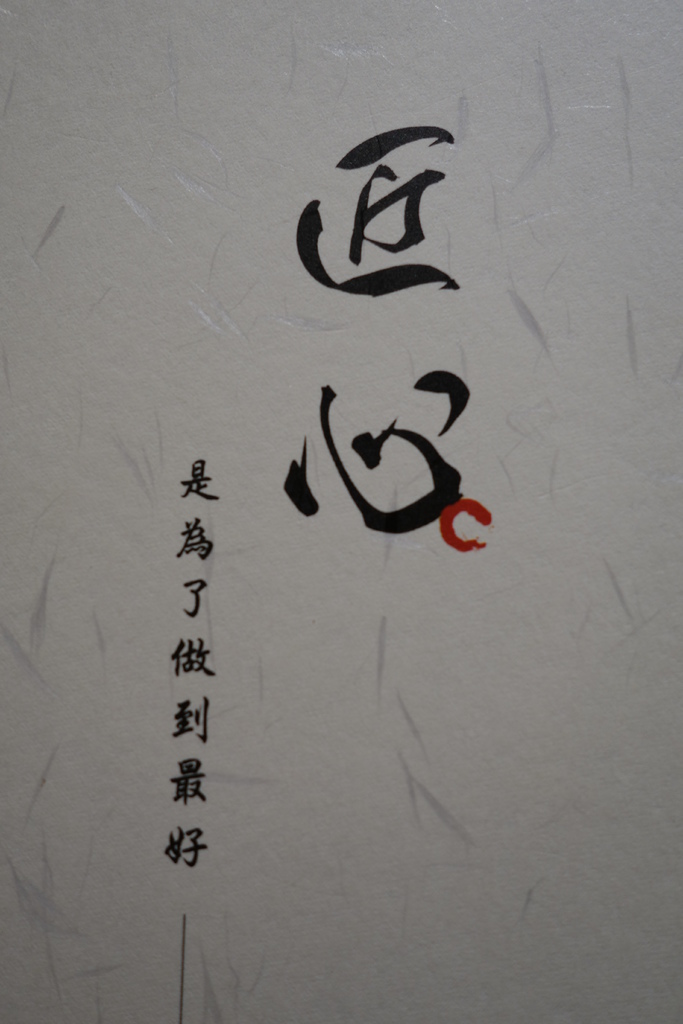 匠心
是為了做到最好